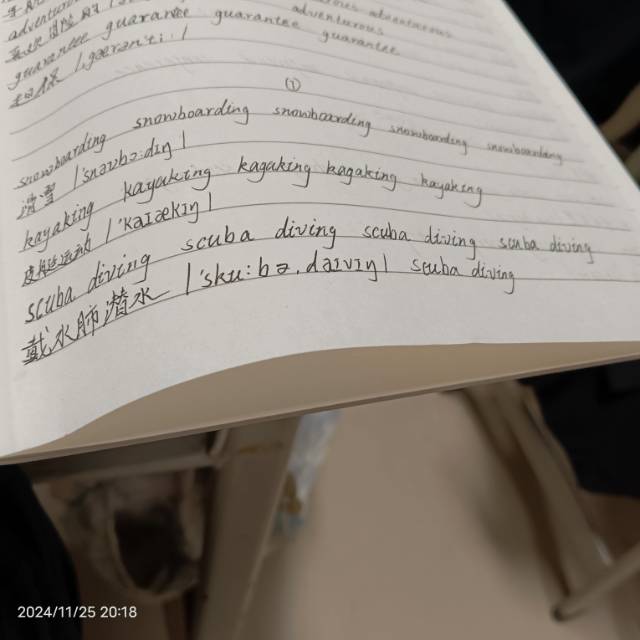 adventurous
adventurous
guarantee guarantee guarantee guarantee guarantee
①
snowboarding snowboarding snowboarding snowboarding snowboarding
滑雪 |'snəʊbɔ:dɪŋ|
kayaking kayaking kagaking kagaking kayaking
皮艇运动 |'kaɪækɪŋ|
scuba diving scuba diving scuba diving scuba diving
戴水肺潜水 |'sku:bə.daɪvɪŋ| scuba diving
2024/11/25 20:18